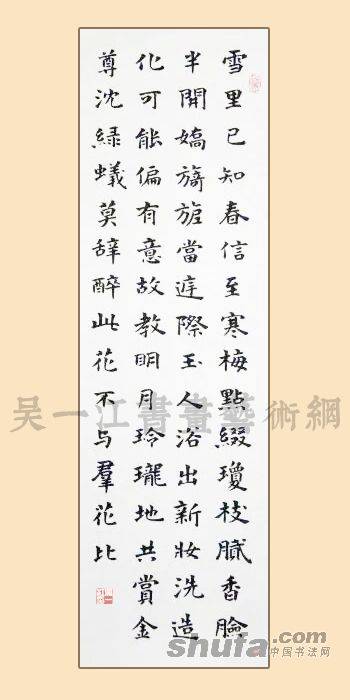 雪里已知春信至寒梅點綴瓊枝膩香臉
半開嬌旖旎當庭際玉人浴出新妝洗造
化可能偏有意故教明月玲瓏地共賞金
尊沈綠蟻莫辭醉此花不与羣花比
吴一江書畫藝術網
shufa.com
中国书法网